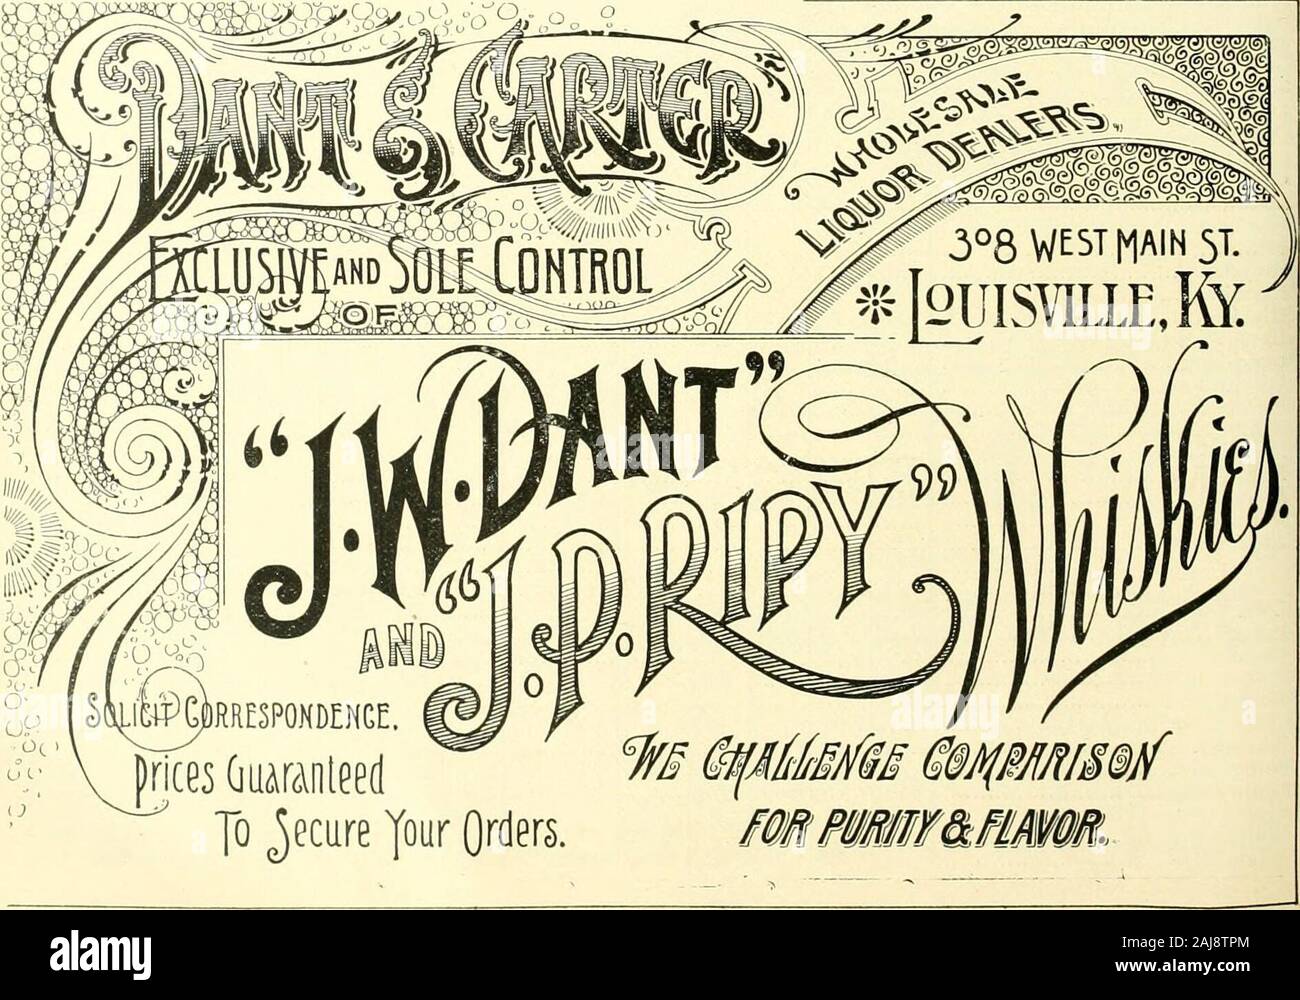 DANT & CARTER
WHOLESALE
LIQUOR DEALERS,
308 WEST MAIN ST.
LOUISVILLE, KY.
EXCLUSIVE AND SOLE CONTROL
OF
"J.W. DANT"
AND "J.P. RIPY" Whiskies.
SOLICIT CORRESPONDENCE.
Prices Guaranteed
To Secure Your Orders.
WE CHALLENGE COMPARISON
FOR PURITY & FLAVOR.
alamy
Image ID: 2AJ8TPM
www.alamy.com